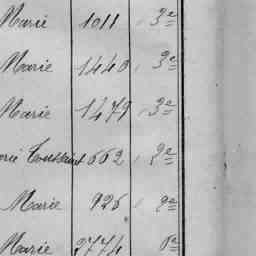 Marie 1011 3e
Marie 1440 3e
Marie 1479 3e
Marie Toussaint 662 3e
Marie 926 9e
Marie 2774 6e